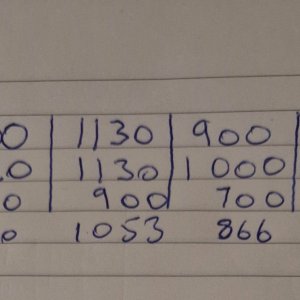 0 1130 900
0 1130 1000
0 900 700
0 1053 866